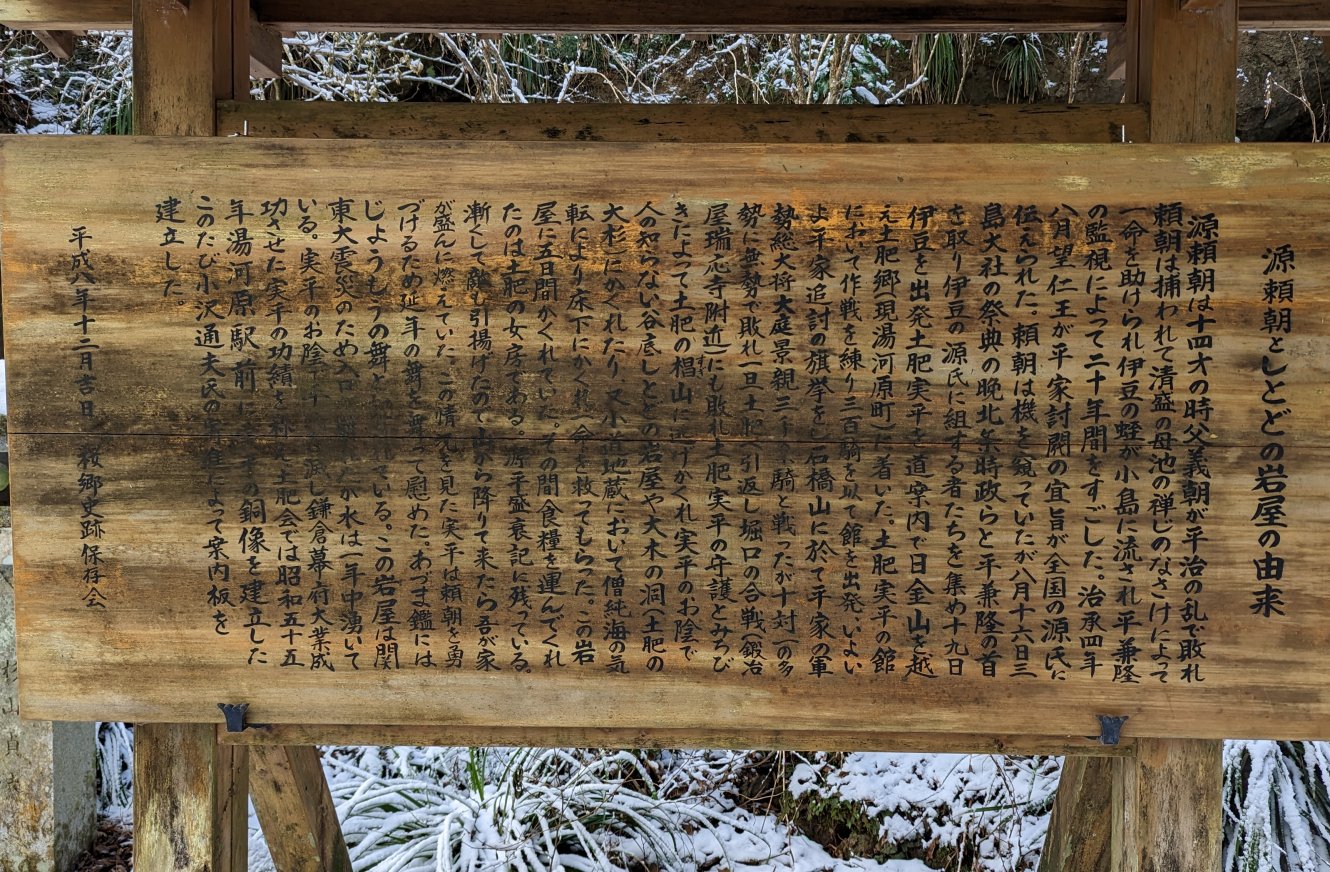 源頼朝としとどの岩屋の由来
源頼朝は十四才の時父義朝が平治の乱で敗れ
頼朝は捕われて清盛の母池の禅じのなさけによって
一命を助けられ伊豆の蛭が小島に流され平兼隆
の監視によって二十年間をすごした。治承四年
八月望仁王が平家討閥の宜旨が全国の源氏に
伝えられた。頼朝は機を窺っていたが八月十六日三
島大社の祭典の晩北条時政らと平兼隆の首
を取り伊豆の源氏に組する者たちを集め十九日
伊豆を出発土肥実平を道案内で日金山を越
え土肥郷(現湯河原町)に着いた。土肥実平の館
において作戦を練り三百騎を以て館を出発いよい
よ平家追討の旗挙をし石橋山に於て平家の軍
勢総大将大庭景親三千余騎と戦ったが十対一の多
勢に無勢で敗れ一旦土肥へ引返し堀口の合戦(鍛冶
屋瑞応寺附近)にも敗れ土肥実平の守護とみちび
きによって土肥の椙山に逃げかくれ実平のお陰で
人の知らない谷底しとどの岩屋や大木の洞(土肥の
大杉)にかくれたり又小道地蔵において僧純海の気
転により床下にかくれ一命を救ってもらった。この岩
屋に五日間かくれていた。その間食糧を運んでくれ
たのは土肥の女房である。源平盛衰記に残っている。
漸くして敵も引揚げたので山から降りて来たら吾が家
が盛んに燃えていた。この情景を見た実平は頼朝を勇
づけるため延年の舞を舞って慰めた。あづま鑑には
じょうもうの舞と れている。この岩屋は関
東大震災のため入口が か水は一年中湧いて
いる。実平のお陰で平 滅し鎌倉幕府大業成
功させた実平の功績を称え土肥会では昭和五十五
年湯河原駅前に の銅像を建立した
このたび小沢通夫氏の によって案内板を
建立した。
平成八年十二月吉日 桜郷史跡保存会
杉山